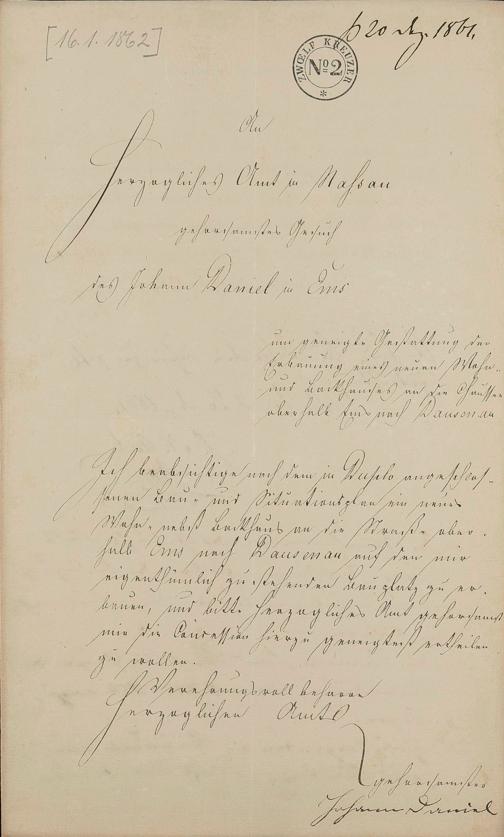 [16.1.1862]
20 Dez. 1861.
ZWOELF KREUZER
No 2
An
Herzogliches Amt in Nassau
gehorsamstes Gesuch
des Johann Daniel in Ems
um geneigte Gestattung der
Erbauung eines neuen Wohn-
und Backhauses an die Chaussee
oberhalb Ems nach Dausenau
Ich beabsichtige nach dem in Duplo angeschlos-
senen Bau- und Situationsplan ein neues
Wohn- nebst Backhaus an die Straße ober-
halb Ems nach Dausenau auf den mir
eigenthümlich zustehenden Bauplatz zu er-
bauen, und bitte Herzogliches Amt gehorsamst
mir die Concession hierzu geneigtest ertheilen
zu wollen.
Verehrungsvoll beharre
Herzoglichen Amts
gehorsamster
Johann Daniel